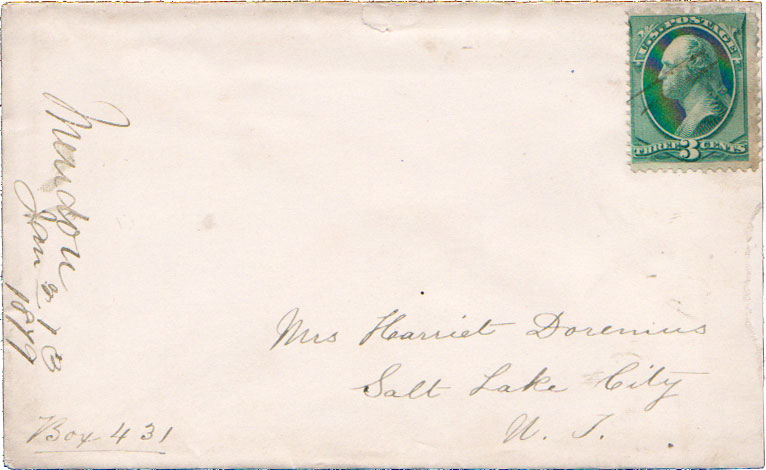 U.S. POSTAGE
THREE 3 CENTS
Mendon
Jan 3 / 13
1879
Mrs Harriet Doremus
Salt Lake City
U. T.
Box 431